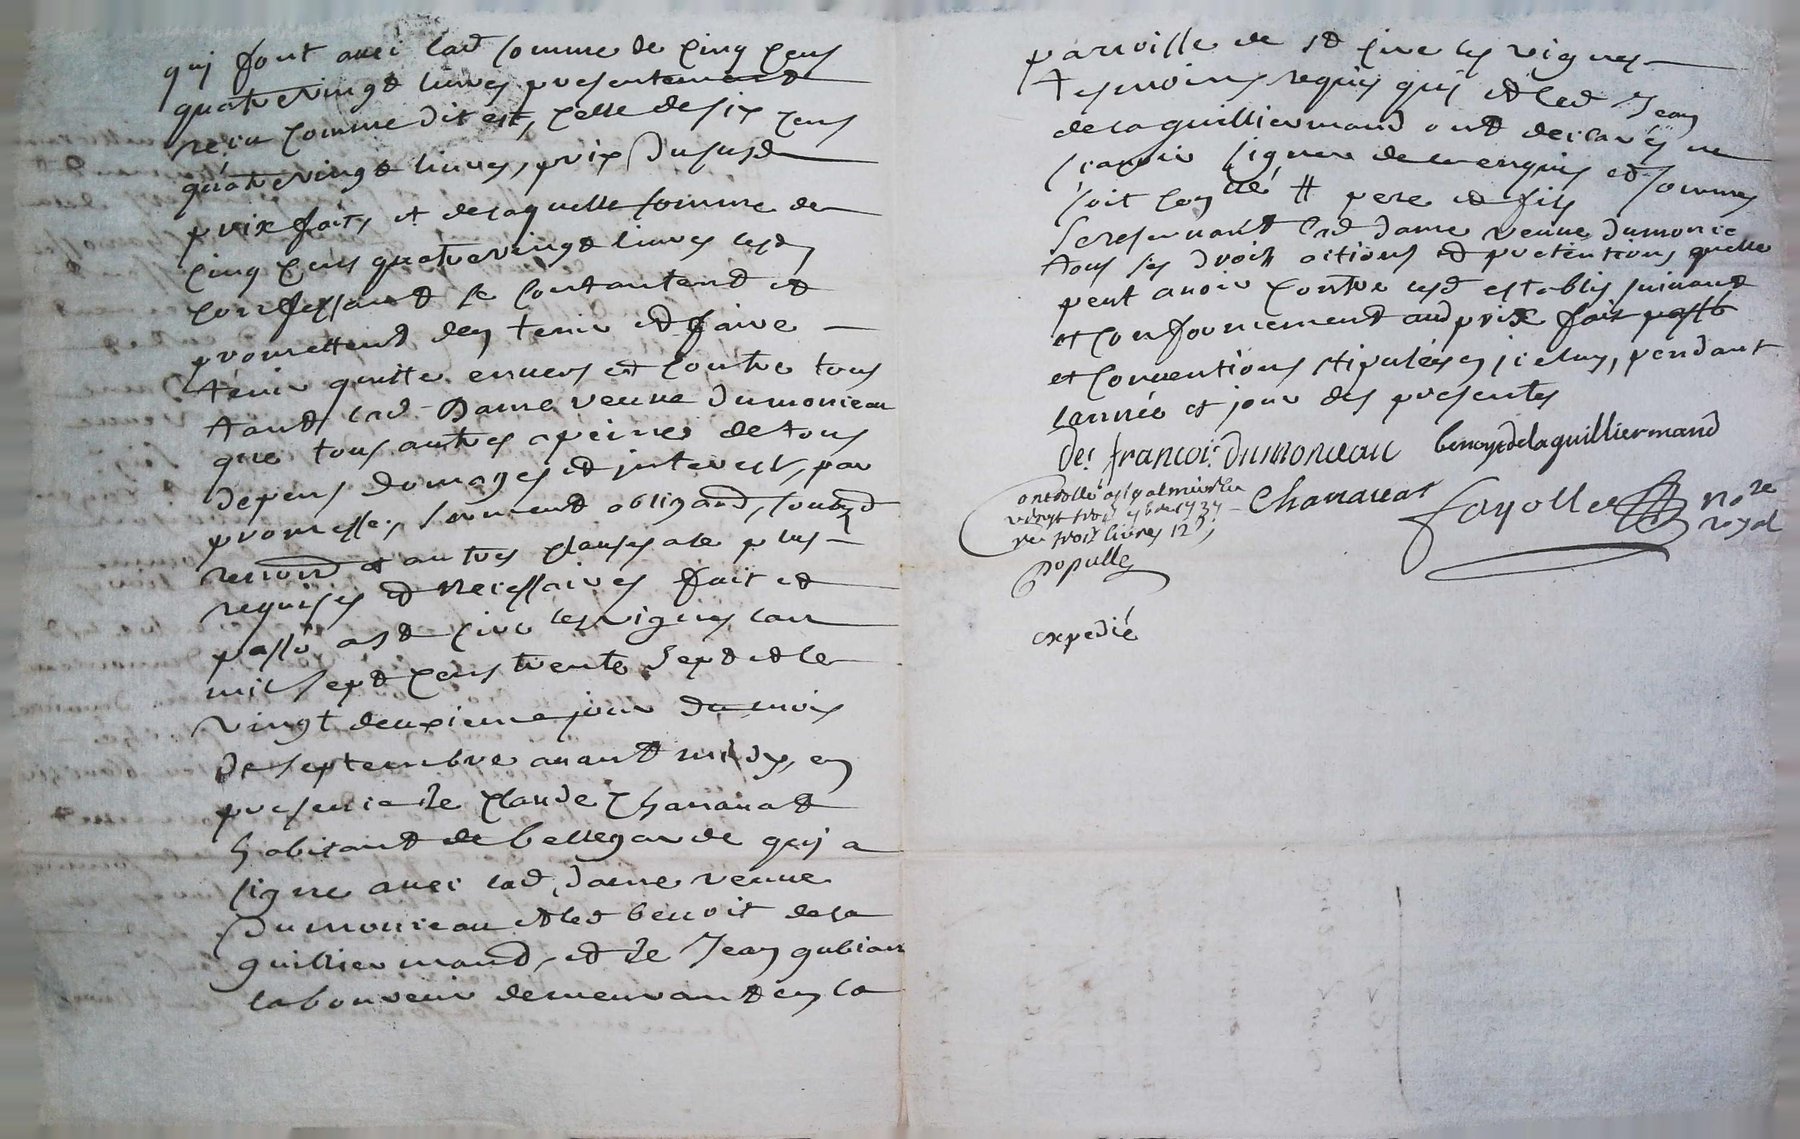 qui font avec lad somme de cinq cens
quatrevingt livres presentement
receu comme dit est, celle de six cens
quatrevingt livres, prix du susd
prix faits et de laquelle somme de
cinq cens quatrevingt livres lesd
confessant se contantent et
promettent den tenir et faire
tenir quitte envers et contre tous
tant lad Dame veuve Dumonceau
que tous autres a peines de tous
depens domages et interest, par
promesses, serment obligaōn, soubzōn
renonōn et autres clauses a ce plus
requises et necessaires fait et
passé a st cire les vignes lan
mil sept cens trente sept et le
vingt deuxieme jour du mois
de septembre avant midy, en
presence de claude Chanavat
habitant de bellegarde qui a
signe avec lad dame veuve
Dumonceau et led benoit dela
guilliermand, et de Jean gubian
laboureur demeurant en la
parroisse de st cire les vignes
tesmoins requis qui et led Jean
delaguilliermand ont declarés ne
scavoir signer de ce enquis et sommes
soit con^lle # pere et fils
se reservant lad dame veuve dumonce
tous ses droits actions et pretentions quelle
peut avoir contre lesd establis suivant
et conformement aud prix fait
et conventions stipulées en icelui, pendant
lannée et jour des presentes
De françois dumonceau benoyt delaguilliermand
Chanavat fayolle no^re
royal
controllé a st galmier le
vingt trois 7bre 1737
recu trois livres 12 s
populle
expedié